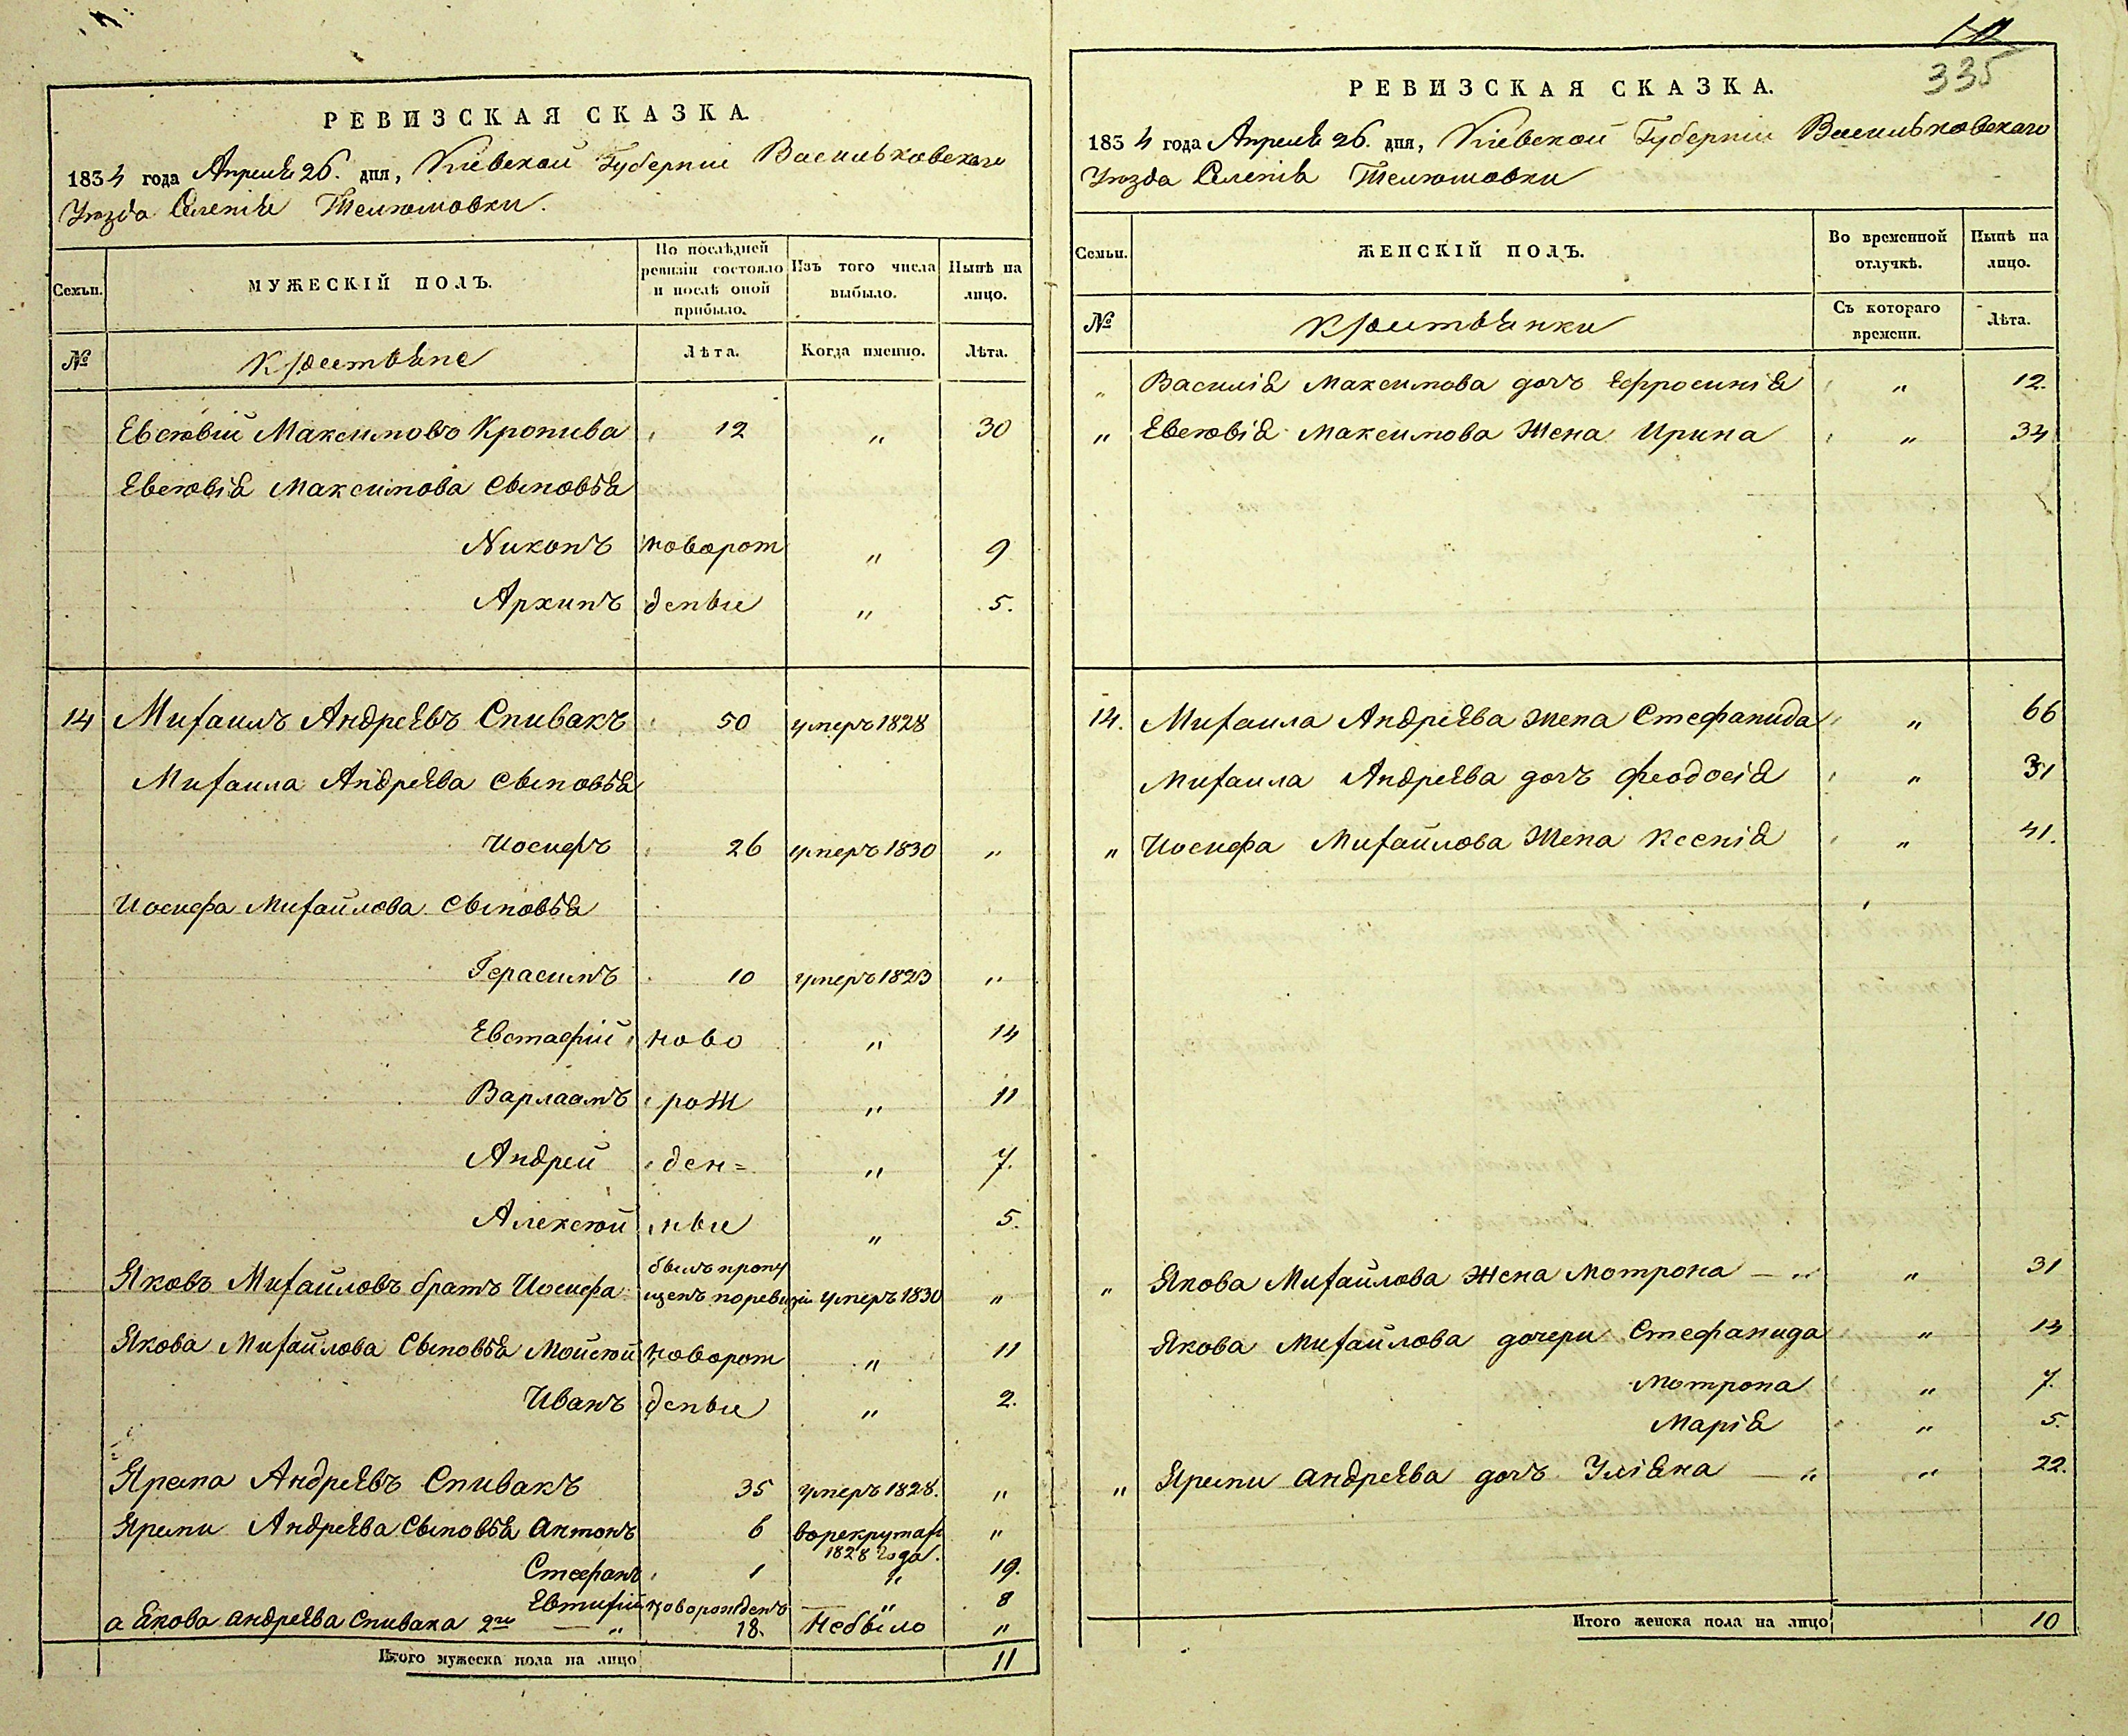 РЕВИЗСКАЯ СКАЗКА.
1834 года Апреля 26. дня, Кіевской Губерніи Васильковскаго
Уѣзда Селенія Телѣшовки.
Семьи.
МУЖЕСКІЙ ПОЛЪ.
По послѣдней ревизіи состояло и послѣ оной прибыло.
Изъ того числа выбыло.
Нынѣ на лицо.
№
Крестьяне
Лѣта.
Когда именно.
Лѣта.
Евсѣвій Максимовъ Кропива 12 " 30
Евсѣвія Максимова сыновья
Никонъ новорож " 9
Архипъ денные " 5.
14 Михаилъ Андреевъ Спивакъ 50 умеръ 1828
Михаила Андреева сыновья
Иосифъ 26 умеръ 1830 "
Иосифа Михайлова сыновья
Герасимъ 10 умеръ 1823 "
Евстафій ново " 14
Варлаамъ рож " 11
Андрей ден= " 7.
Алексѣй ные " 5.
Яковъ Михайловъ братъ Иосифа былъ пропущенъ поревизіи умеръ 1830 "
Якова Михайлова сыновья Мойсѣй новорож " 11
Иванъ денные " 2.
Ярема Андреевъ Спивакъ 35 умеръ 1828. "
Яремы Андреева сыновья Антонъ 6 врекрутах 1828 года. "
Стефанъ 1 " 19.
Евтихій новорожденъ — " 8
а Якова Андреева Спивака 2го — " 18. Небыло "
Итого мужеска пола на лицо 11
335
РЕВИЗСКАЯ СКАЗКА.
1834 года Апреля 26. дня, Кіевской Губерніи Васильковскаго
Уѣзда Селенія Телѣшовки
Семьи.
ЖЕНСКІЙ ПОЛЪ.
Во временной отлучкѣ.
Нынѣ на лицо.
№
Крестьянки
Съ котораго времени.
Лѣта.
" Василія Максимова дочъ Ефросинія " 12.
" Евсѣвія Максимова Жена Ирина " 34
14. Михаила Андреева жена Стефанида " 66
Михаила Андреева дочъ Феодосія " 31
" Иосифа Михайлова Жена Ксенія " 41.
" Якова Михайлова Жена Мотрона — " " 31
Якова Михайлова дочери Стефанида " 14
Мотрона " 7.
Марія " 5.
" Яремы Андреева дочъ Уліяна — " " 22.
Итого женска пола на лицо 10